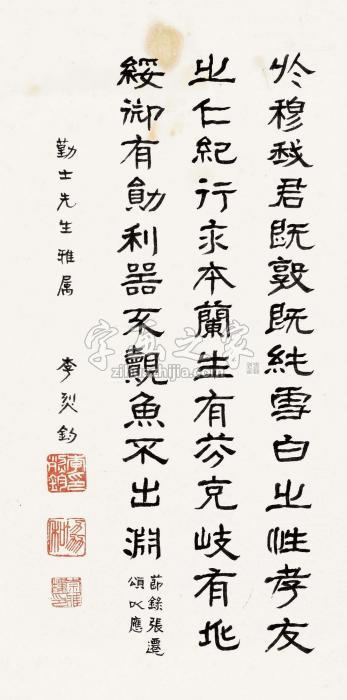 於穆我君既敦既純雪白之性孝友
之仁紀行求本蘭生有芬克岐有兆
綏御有勛利器不覿魚不出淵
節錄張遷
頌以應
勤士先生雅属
李烈鈞
字画之家